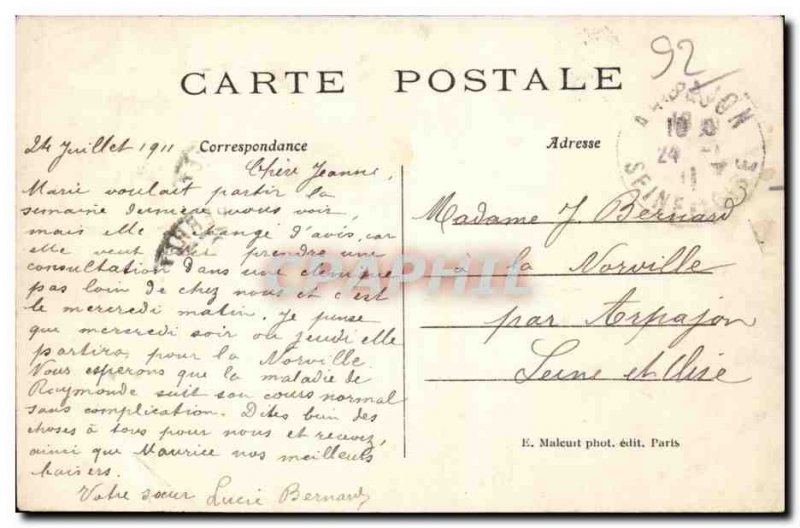 92
CARTE POSTALE
24 Juillet 1911 Correspondance
Adresse
Chère Jeanne,
Marie voulait partir la
semaine dernière vous voir,
mais elle changé d'avis, car
elle veut prendre une
consultation dans une clinique
pas loin de chez nous et c'est
le mercredi matin. Je pense
que mercredi soir ou jeudi elle
partira pour la Norville.
Nous espérons que la maladie de
Raymonde suit son cours normal
sans complication. Dites bien des
choses à tous pour nous et recevez,
ainsi que Maurice nos meilleurs
baisers.
Votre sœur Lucie Bernard
Madame J. Bernard
à la Norville
par Arpajon
Seine et Oise
E. Malcuit phot. édit. Paris
ARPAJON
24
11
SEINE
CPAPHIL